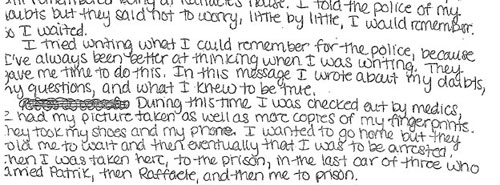 remembered being at Raffaele's house. I told the police of my
doubts but they said not to worry, little by little, I would remember.
So I waited.
I tried writing what I could remember for the police, because
I've always been better at thinking when I was writing. They
gave me time to do this. In this message I wrote about my doubts,
my questions, and what I knew to be true.
During this time I was checked out by medics,
I had my picture taken as well as more copies of my fingerprints.
They took my shoes and my phone. I wanted to go home but they
told me to wait and then eventually that I was to be arrested.
Then I was taken here, to the prison, in the last car of three who
carried Patrik, then Raffaele, and then me to prison.